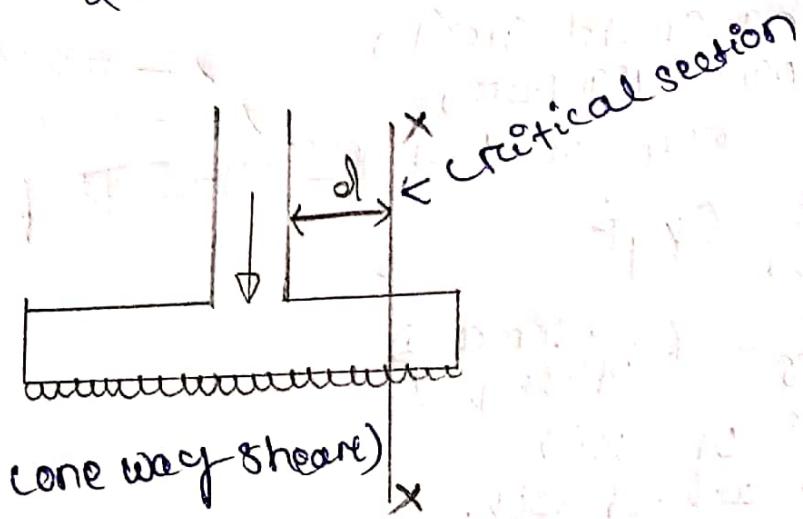 X
← critical section
d
(one way sheare)
X